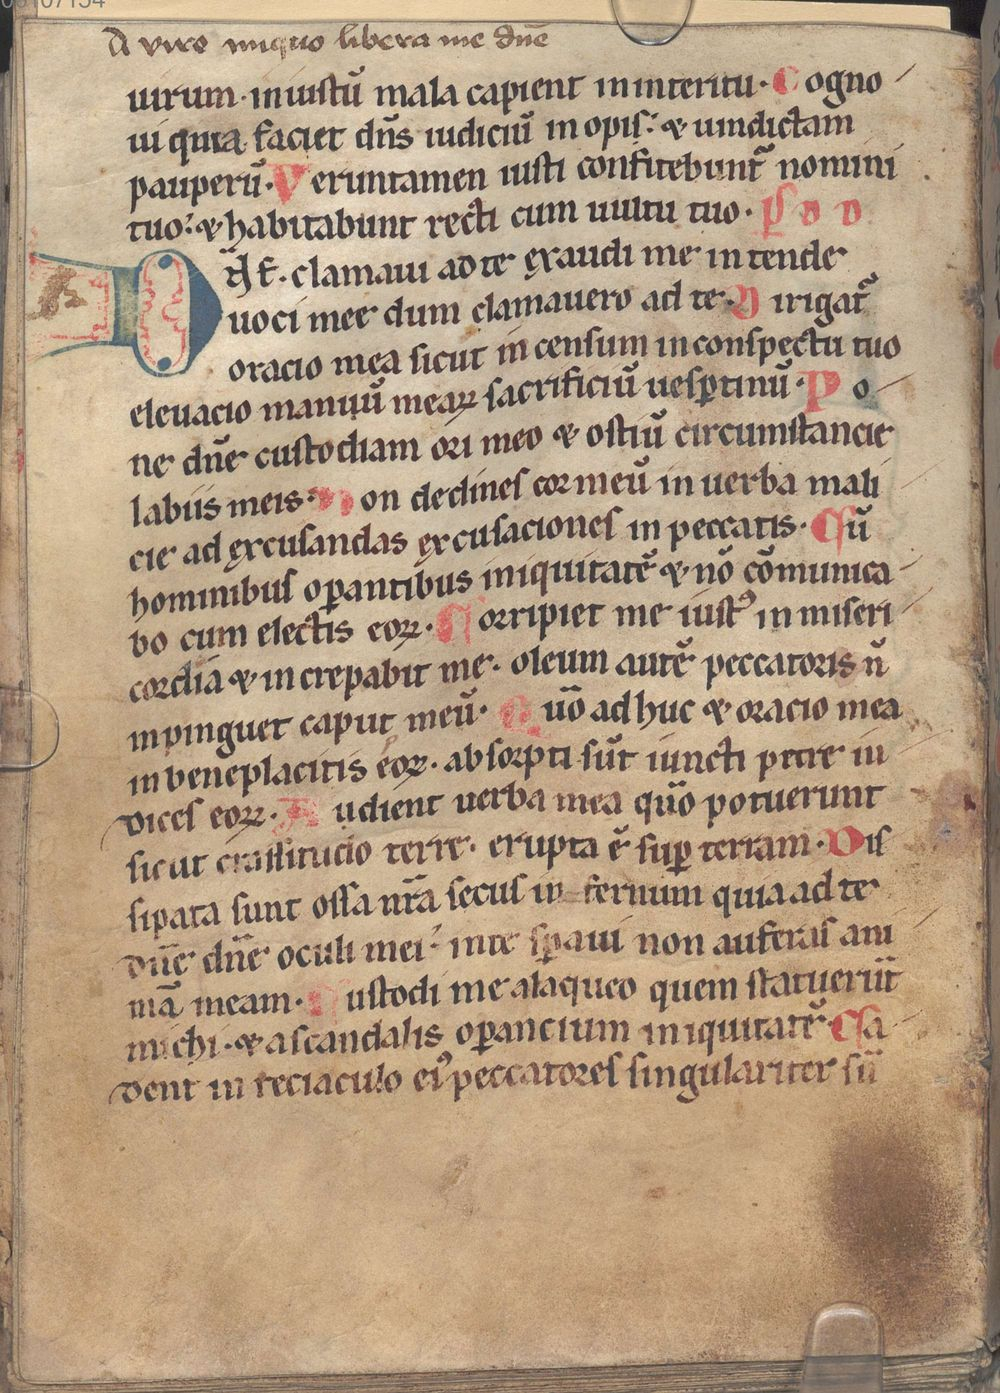 A viro iniquo libera me dn̄e
uirum· iniustū mala capient in interitu· Cogno
ui quia faciet dn̄s iudiciū inopis: & uindictam
pauperū· Veruntamen iusti confitebunt᷑ nomini
tuo: & habitabunt recti cum uultu tuo· ps̄ d d
Dn̄e· clamaui ad te ęxaudi me intende
uoci mee dum clamauero ad te· Dirigat᷑
oracio mea sicut incensum in conspectu tuo
eleuacio manuū meaꝝ sacrificiū uesꝑtinū· Po
ne dn̄e custodiam ori meo & ostiū circumstancie
labiis meis· Non declines cor meū in uerba mali
cie ad ęxcusandas ęxcusaciones in peccatis· Cū
hominibus oꝑantibus iniquitatē & nō cōmunica
bo cum electis eoꝝ· Corripiet me iustꝰ in miseri
cordia & increpabit me· oleum autē peccatoris n̄
inpinguet caput meū· Quō adhuc & oracio mea
in beneplacitis eoꝝ· absorpti sūt iuncti petre iu
dices eoꝝ· Audient uerba mea quō potuerunt
sicut crassitucio terre· erupta ē suꝑ terram· Dis
sipata sunt ossa nr̄a secus infernum quia ad te
dn̄e dn̄e oculi mei: in te sꝑaui non auferas ani
mā meam· Custodi me a laqueo quem statuerūt
michi· & a scandalis oꝑancium iniquitatē· Ca
dent in reciaculo eiꝰ peccatores singulariter sū